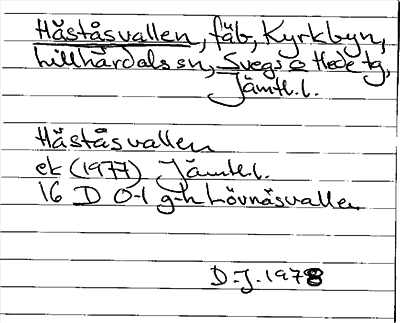 Håståsvallen, fäb, Kyrkbyn,
Lillhärdals sn, Svegs o Hede tg,
Jämtl.l.
Håståsvallen
ek (1977) Jämtl.l.
16 D 0-1 g-h Lövnäsvallen
D.J. 1978